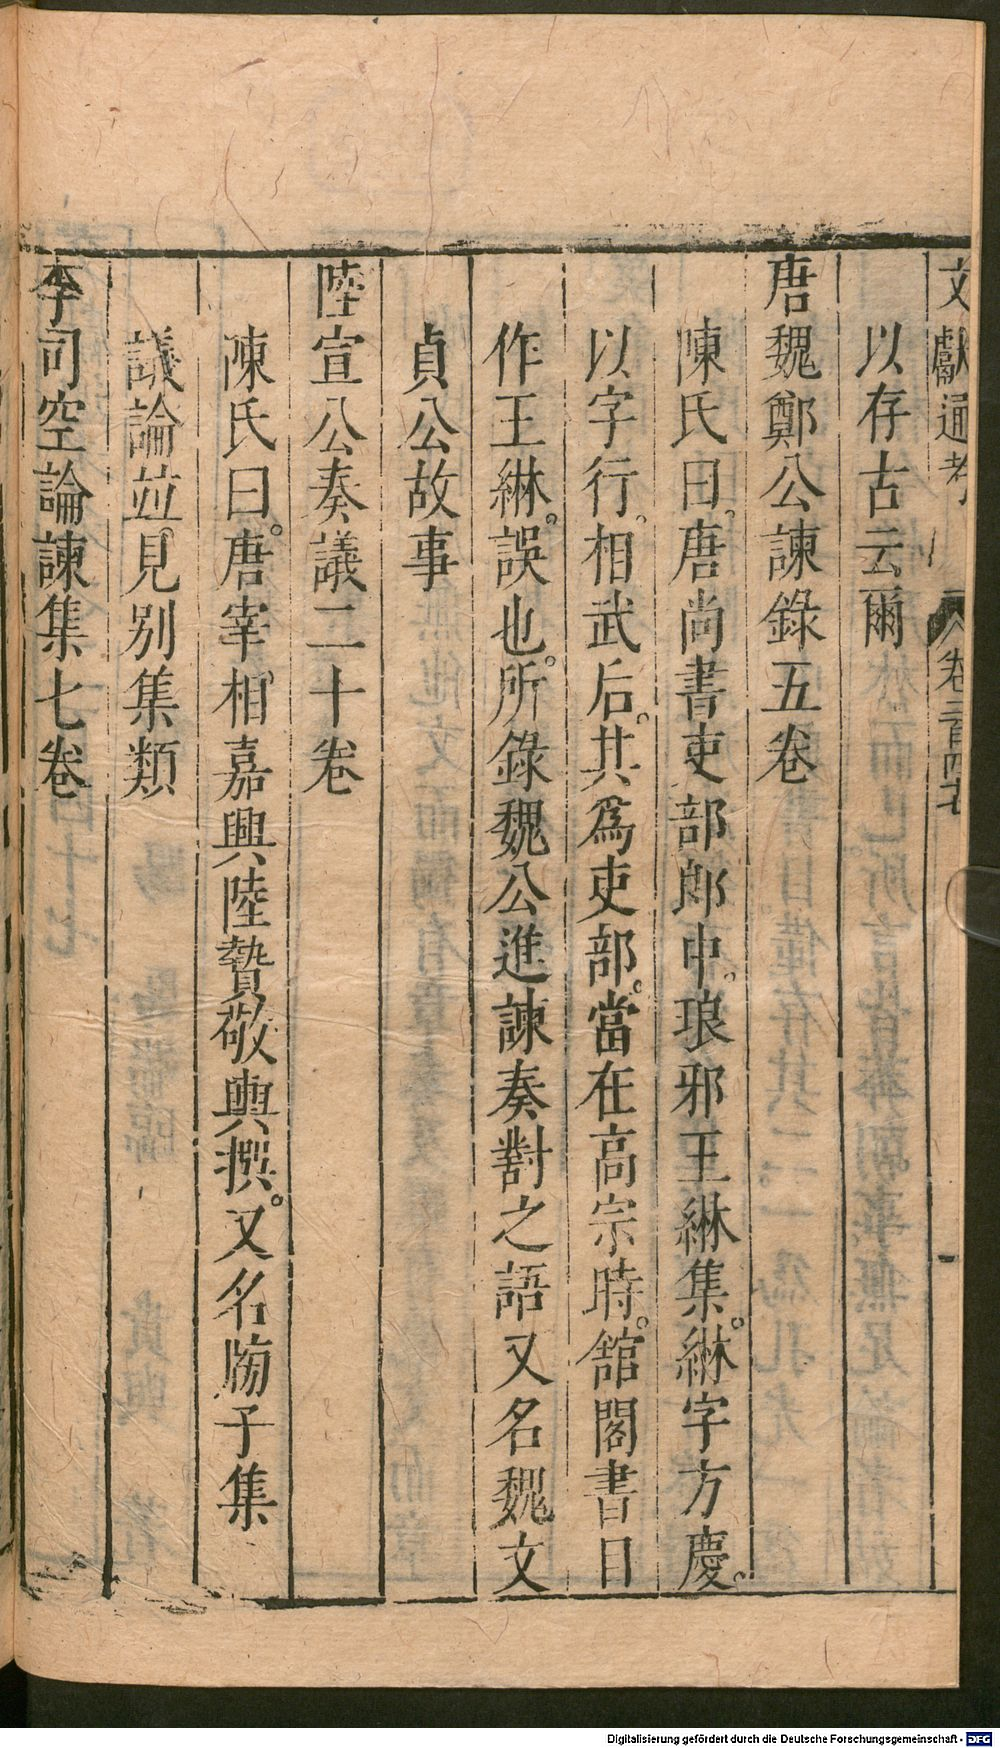 文獻通考 卷二百四七
以存古云爾
唐魏鄭公諫錄五卷
陳氏曰唐尚書吏部郎中琅邪王綝集綝字方慶
以字行相武后其為吏部當在高宗時舘閣書目
作王綝誤也所錄魏公進諫奏對之語又名魏文
貞公故事
陸宣公奏議二十卷
陳氏曰唐宰相嘉興陸贄敬輿撰又名牓子集
議論並見別集類
李司空論諫集七卷
Digitalisierung gefördert durch die Deutsche Forschungsgemeinschaft - DFG